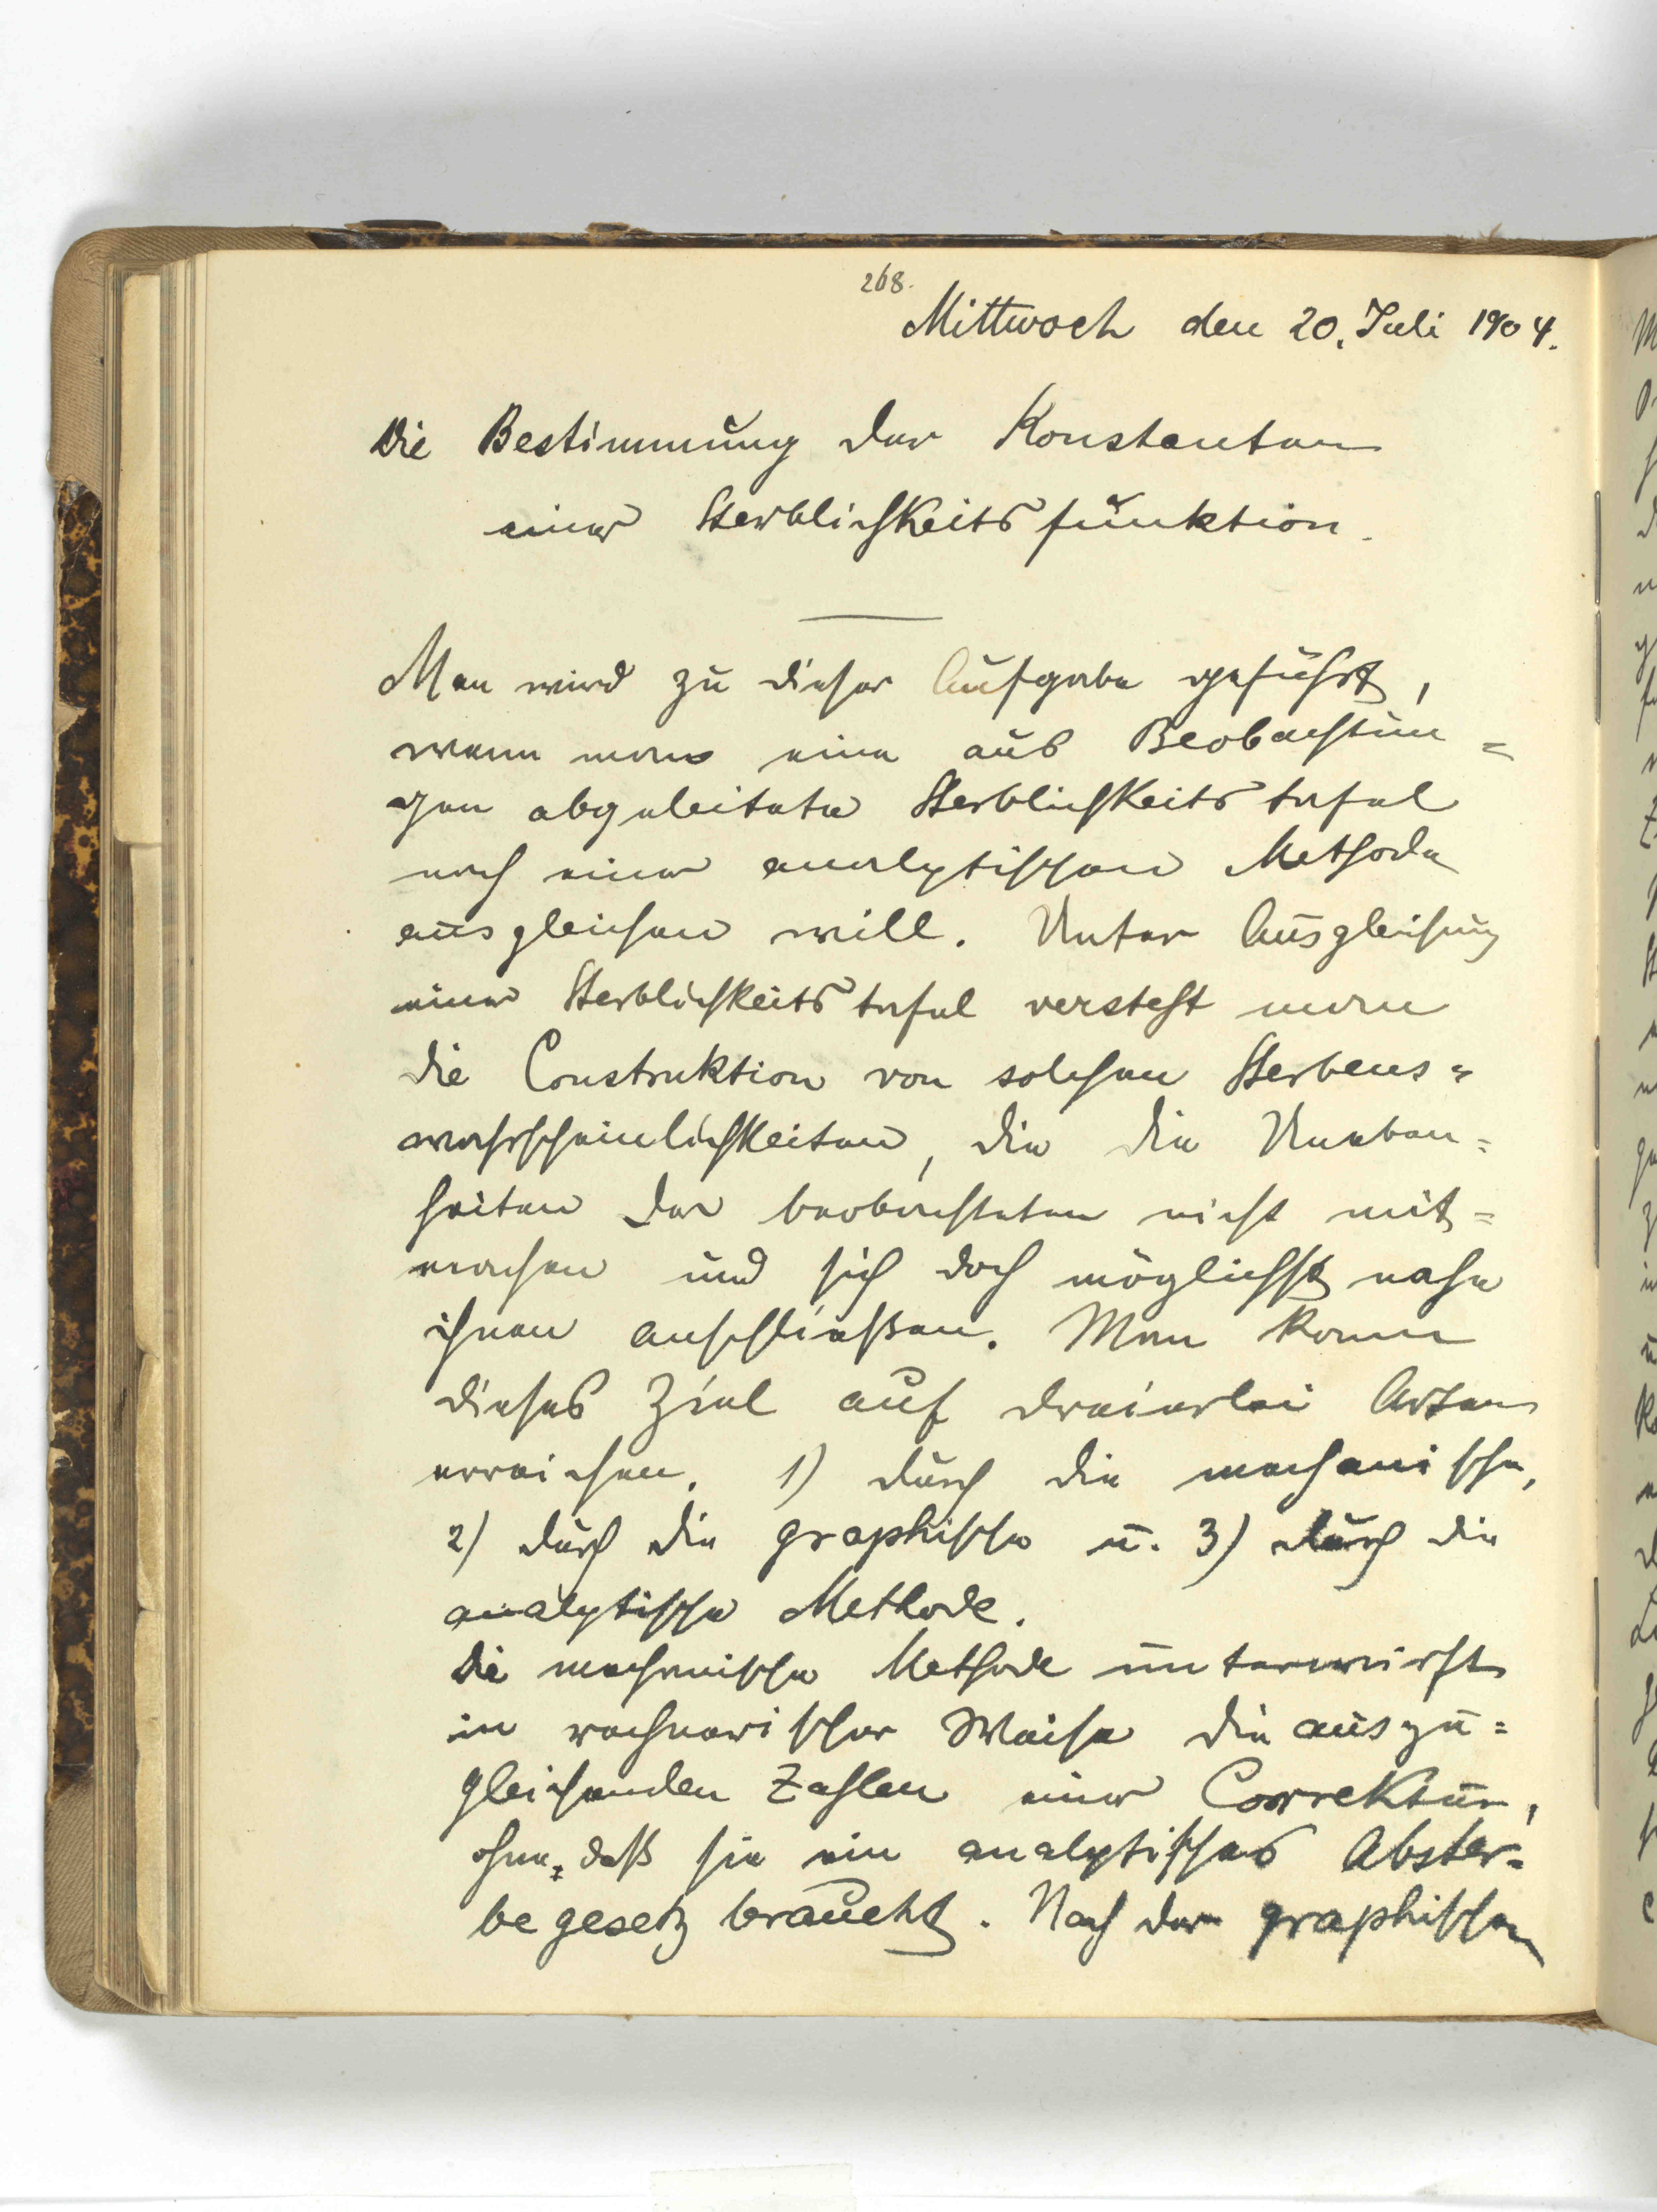 268.
Mittwoch den 20. Juli 1904.
Die Bestimmung der Konstanten
einer Sterblichkeitsfunktion.
Man wird zu dieser Aufgabe geführt,
wenn man eine aus Beobachtun=
gen abgeleitete Sterblichkeitstafel
nach einer analytischen Methode
ausgleichen will. Unter Ausgleichung
einer Sterblichkeitstafel versteht man
die Construktion von solchen Sterbens=
wahrscheinlichkeiten, die die Uneben=
heiten der beobachteten nicht mit=
machen und sich doch möglichst nahe
ihnen anschließen. Man kann
dieses Ziel auf dreierlei Arten
erreichen. 1) durch die mechanische,
2) durch die graphische u. 3) durch die
analytische Methode.
Die mechanische Methode unterwirft
in rechnerischer Weise die auszu=
gleichenden Zahlen einer Correktur,
ohne, daß sie ein analytisches Abster=
begesetz braucht. Nach der graphischen